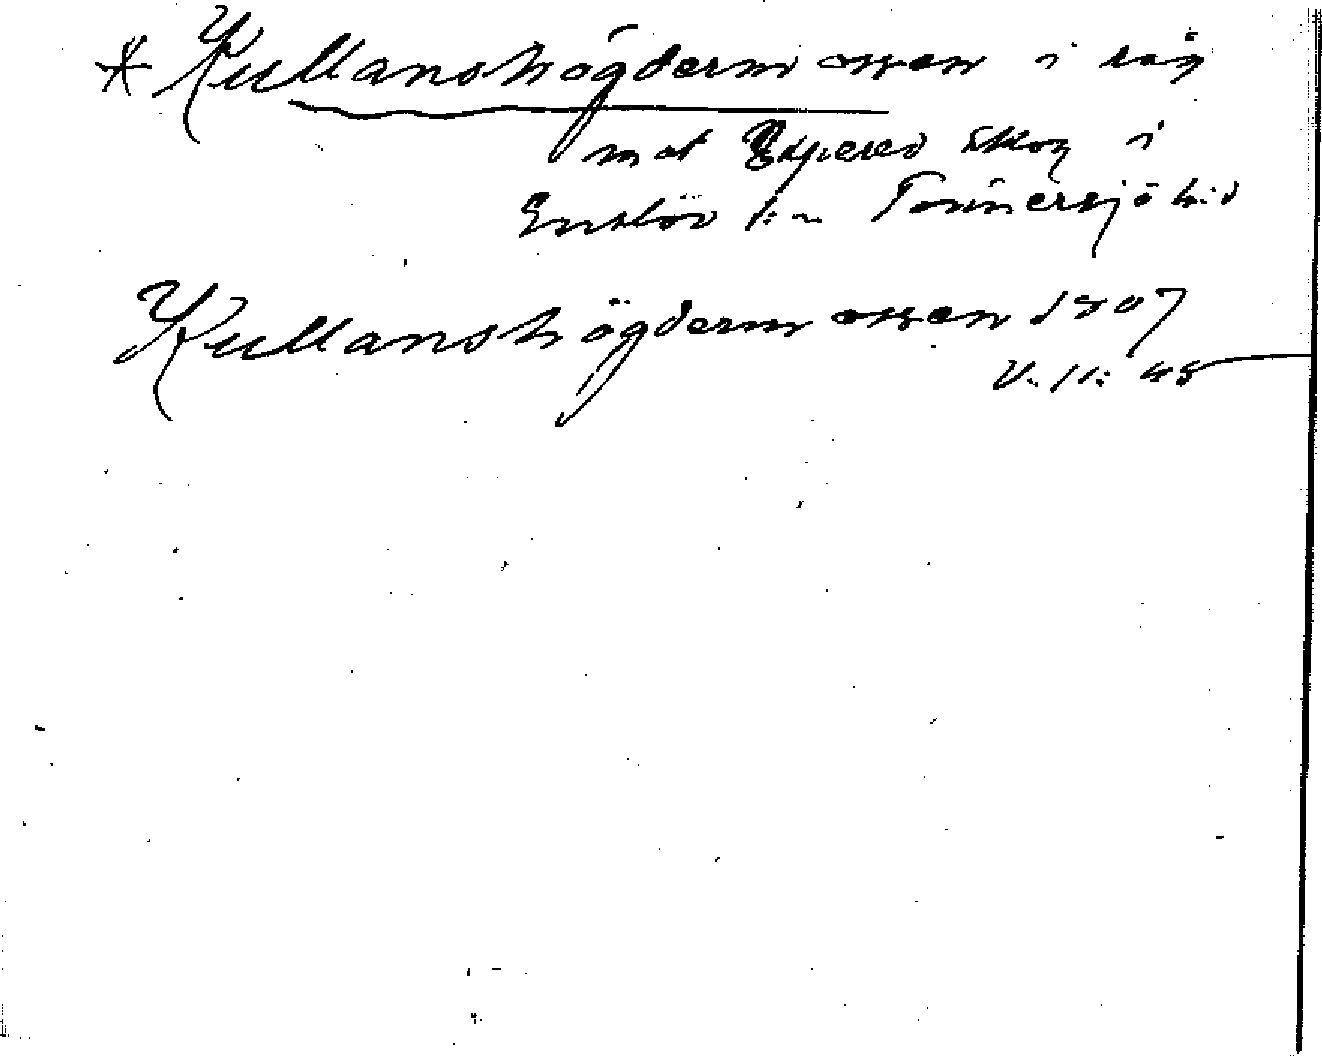 * Kullanshögdermossen i råg
mot Expered skog i
Enslöv s:n Tönnersjö h:d
Kullanshögdermossen 1807
V. 11: 45